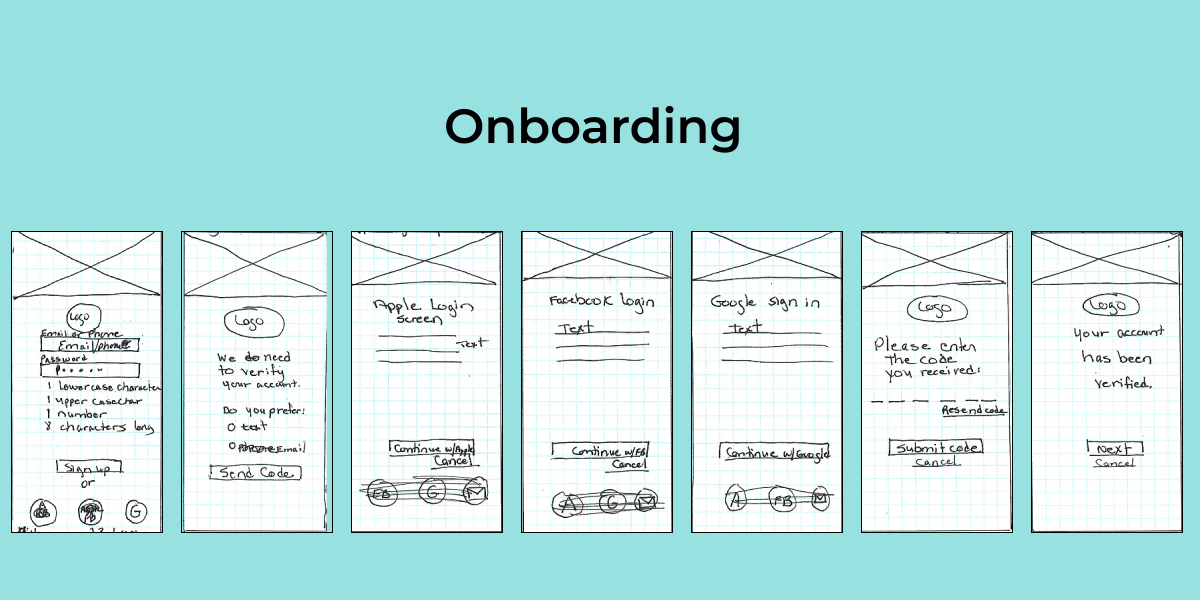 Onboarding
Logo
Email or Phone
Email/phone
Password
P.....
1 lowercase character
1 upper casechar
1 number
8 characters long
Sign up
or
G
Logo
We need
to verify
your account.
Do you prefer:
text
Email
Send Code
Apple Login
screen
Text
Continue w/Apple
Cancel
FB G
Facebook login
Text
Continue w/FB
Cancel
A G
Google sign in
text
Continue w/Google
A FB
Logo
Please enter
the code
you received:
Resend code
Submit code
Cancel
Logo
your account
has been
verified.
Next
Cancel